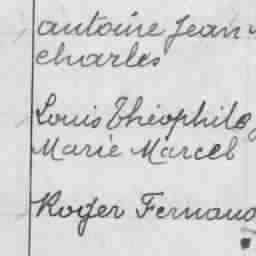 antoine Jean
charles
Louis Théophile
Marie Marcel
Roger Fernand